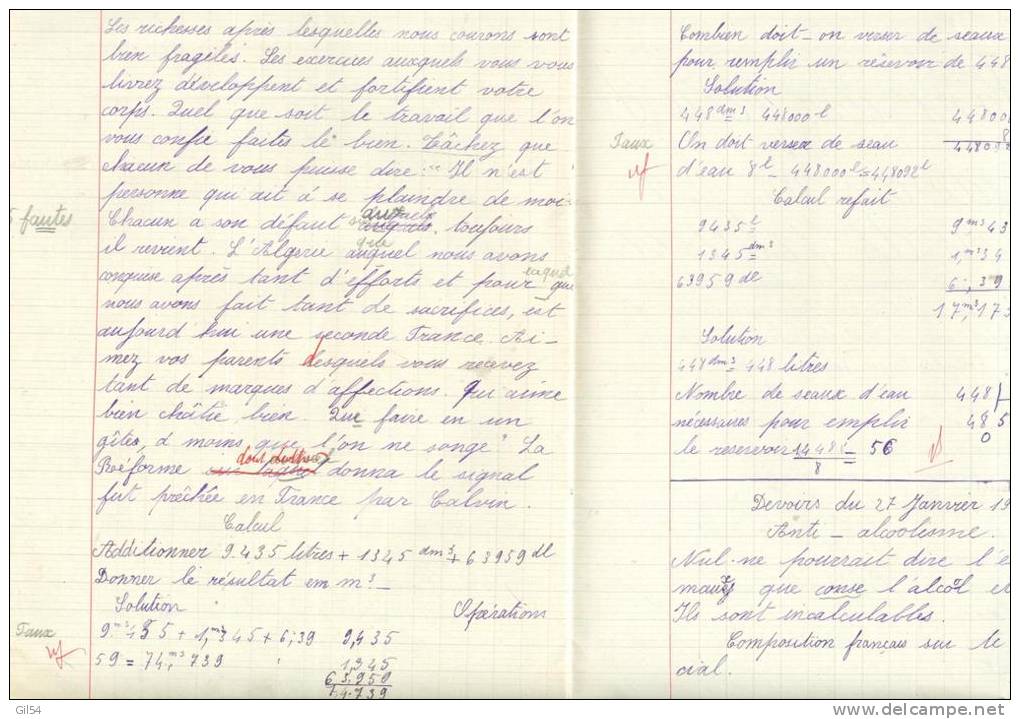 Les richesses après lesquelles nous courons sont
bien fragiles. Les exercices auxquels vous vous
livrez développent et fortifient votre
corps. Quel que soit le travail que l'on
vous confie faites le bien. Tâchez que
chacun de vous puisse dire : " Il n'est
personne qui ait à se plaindre de moi.
5 fautes
Chacun a son défaut toujours
il revient. L'Algérie auquel nous avons
que
conquise après tant d'éfforts et pour que
laquel
nous avons fait tant de sacrifices, est
aujourd'hui une seconde France. Ai-
mez vos parents desquels vous recevez
tant de marques d'affections. Qui aime
bien châtie bien. Que faire en un
gîtes, à moins que l'on ne songe " La
Réforme dont donna le signal
fut prêchée en France par Calvin.
Calcul
Additionner 9.435 litres + 1345 dm³ + 63959 dl
Donner le résultat em m³ _
Solution Opérations
Faux
9,m³435 + 1,m³345 + 6;39 9,435
59 = 74,m³739 1,345
63,959
74.739
Combien doit-on verser de seaux
pour remplir un réservoir de 448
Solution
448 dm³ 448000 l 44800
8
Faux
On doit verser de seau 448092
d'eau 8l _ 448000l = 448092l
Calcul refait
9435 l 9 m³ 43
1345 dm³ 1,m³34
63959 dl 6;39
17,m³173
Solution
448 dm³ = 448 litres
Nombre de seaux d'eau 448
nécessaires pour emplir 48 5
0
le reservoir = 56
8
Devoirs du 27 Janvier 19
Anti - alcoolisme.
Nul ne pourrait dire l'é
maux que conse l'alcol et
Ils sont incalculables.
Composition français sur le
cial.
Gil54
www.delcampe.net